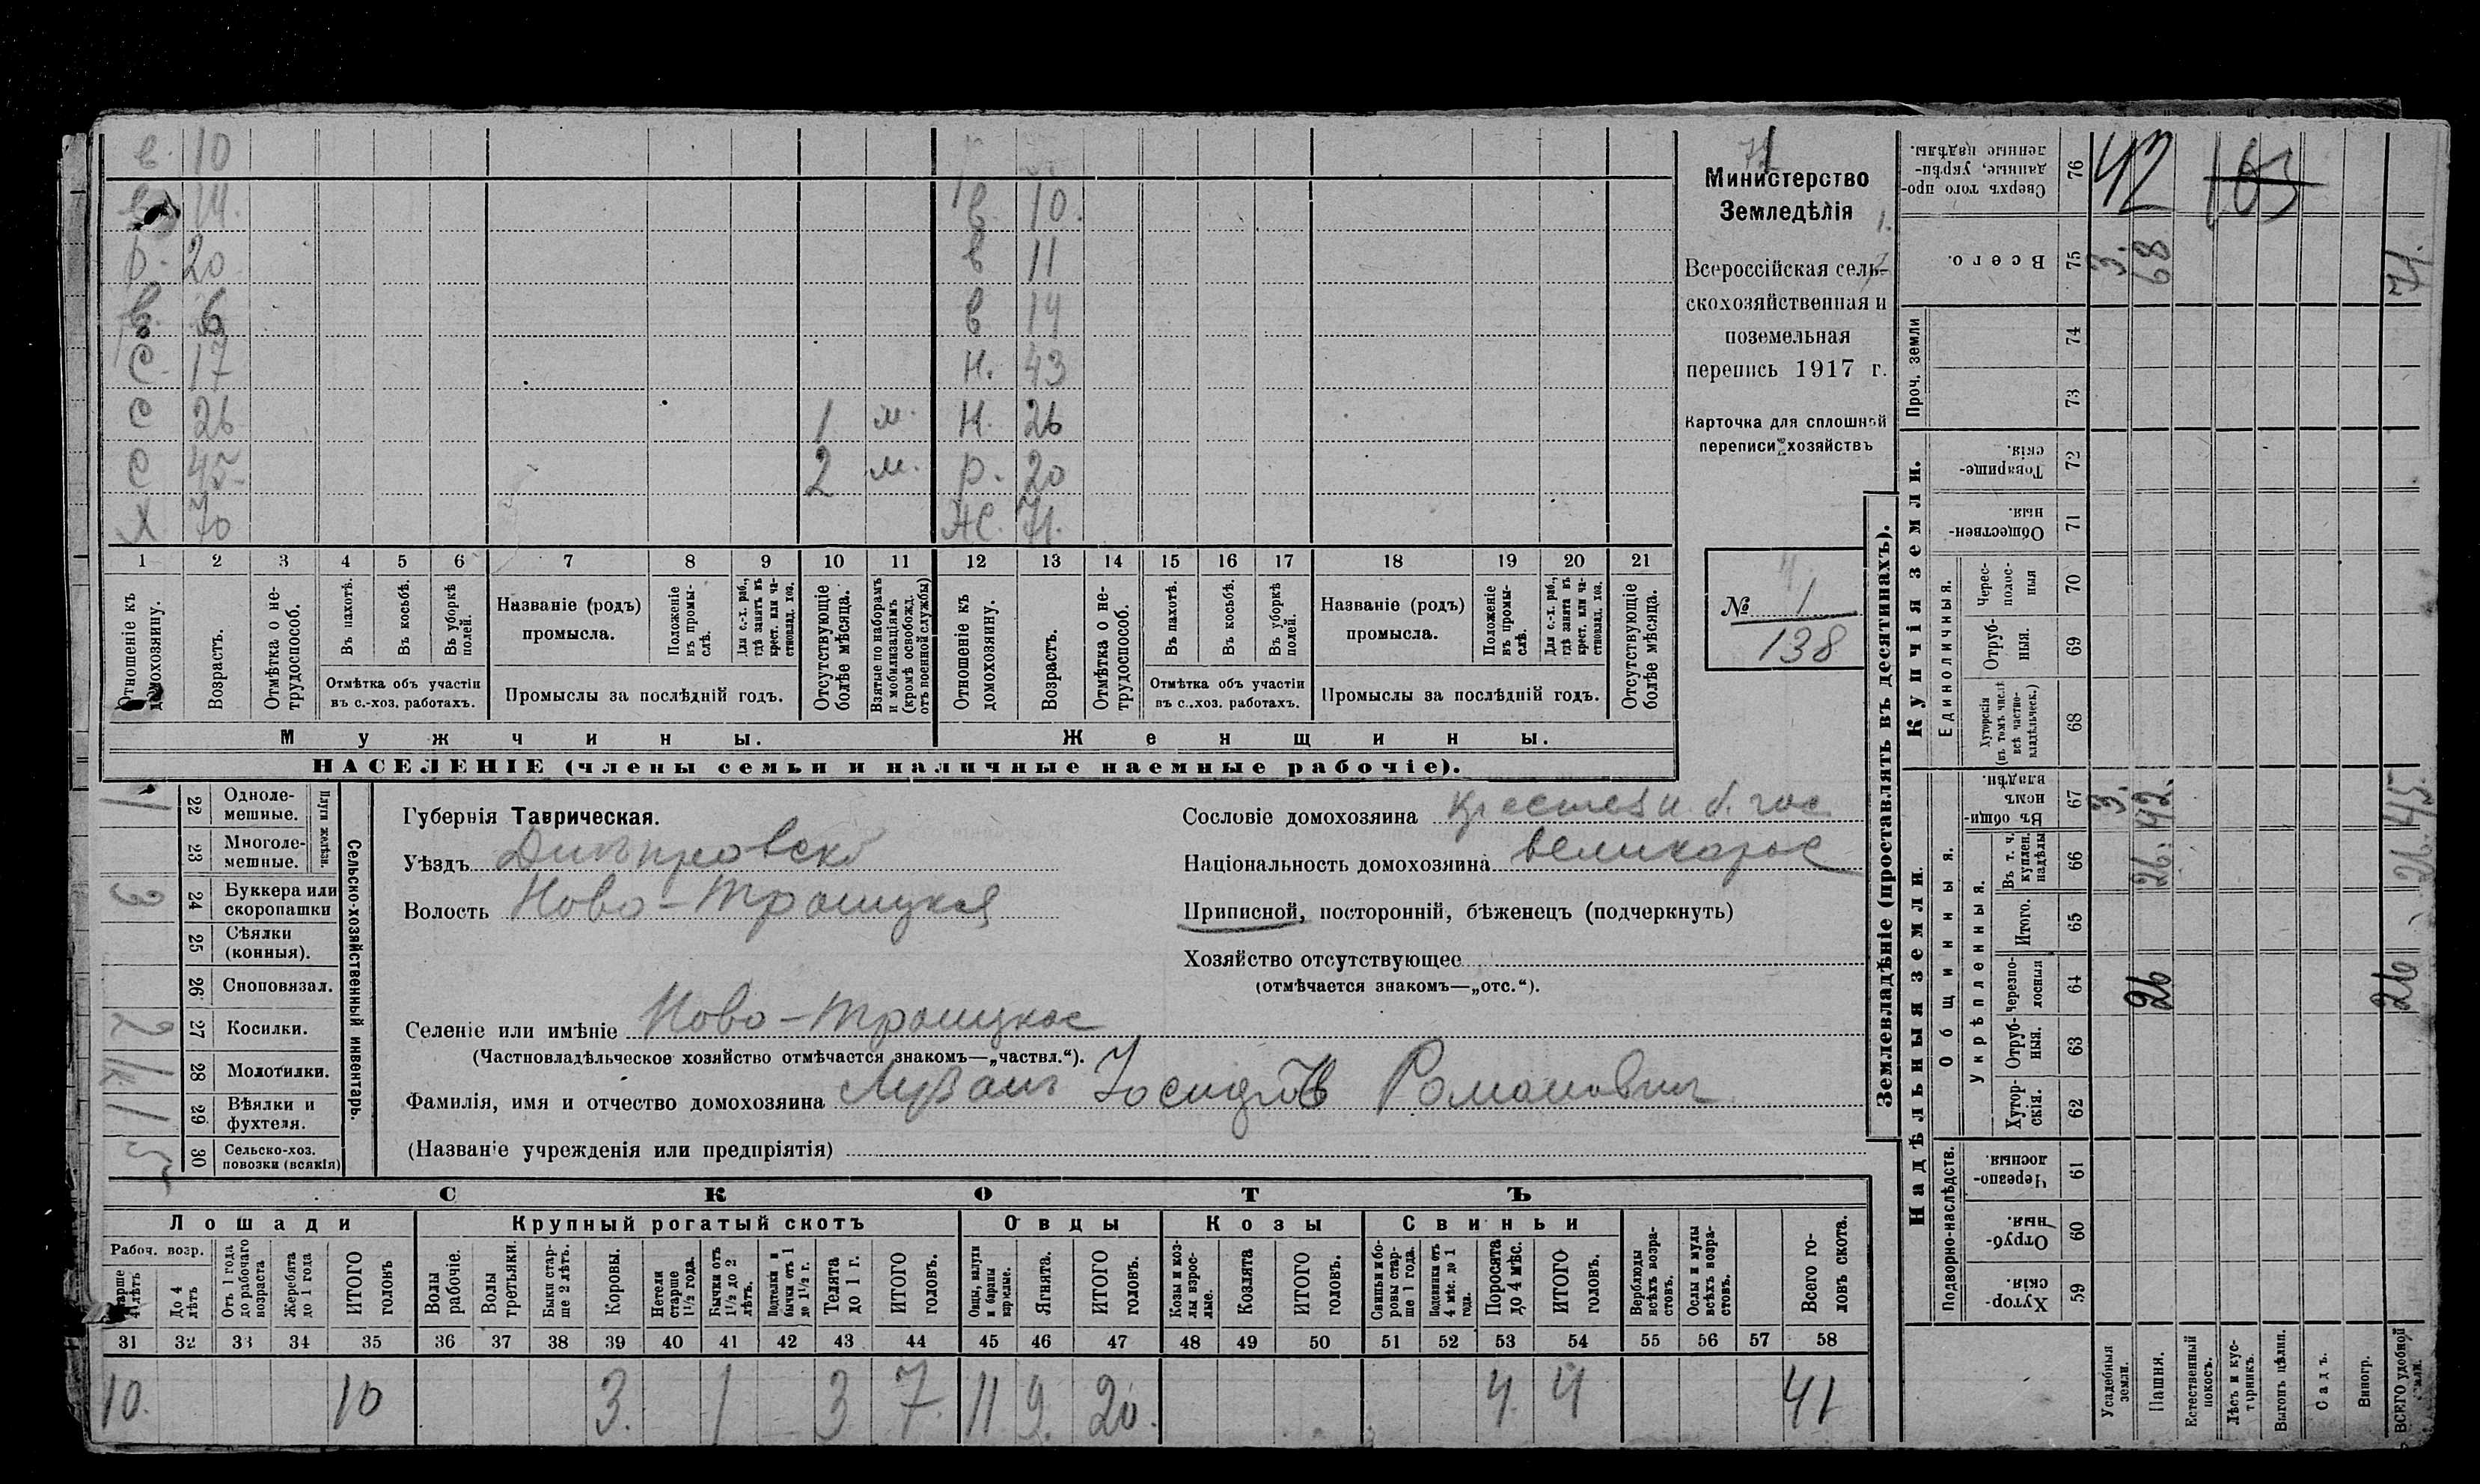 в. 10
14.
р. 20
в. 6
С. 17
С 26
С 45
Х 70
1 м.
2 м.
в. 10.
в 11
в 14
н. 43
н. 26
р. 20
Ж. 71.
1 2 3 4 5 6 7 8 9 10 11 12 13 14 15 16 17 18 19 20 21
Отношеніе къ домохозяину.
Возрастъ.
Отмѣтка о не-
трудоспособ.
Въ пахотѣ.
Въ косьбѣ.
Въ уборкѣ полей.
Отмѣтка объ участіи
въ с.-хоз. работахъ.
Названіе (родъ)
промысла.
Положеніе въ промы-
слѣ.
Для с.-х. раб., гдѣ занятъ въ крест. или ча-
стновлад. хоз.
Промыслы за послѣдній годъ.
Отсутствующіе болѣе мѣсяца.
Взятые по наборамъ и мобилизаціямъ (кромѣ освобожд. отъ военной службы)
Отношеніе къ домохозяину.
Возрастъ.
Отмѣтка о не-
трудоспособ.
Въ пахотѣ.
Въ косьбѣ.
Въ уборкѣ полей.
Отмѣтка объ участіи
въ с..хоз. работахъ.
Названіе (родъ)
промысла.
Положеніе въ промы-
слѣ.
Для с.-х. раб., гдѣ занята въ крест. или ча-
стновлад. хоз.
Промыслы за послѣдній годъ.
Отсутствующіе болѣе мѣсяца.
Мужчины.
Женщины.
НАСЕЛЕНІЕ (члены семьи и наличные наемные рабочіе).
Министерство
Земледѣлія
Всероссійская сель-
скохозяйственная и
поземельная
перепись 1917 г.
Карточка для сплошной
переписи хозяйствъ
№ 1
138
1 22 Одноле-
мешные.
23 Многоле-
мешные.
Плуги желѣзн.
3 24 Буккера или
скоропашки
25 Сѣялки
(конныя).
26 Сноповязал.
2 27 Косилки.
28 Молотилки.
1 29 Вѣялки и
фухтеля.
5 30 Сельско-хоз.
повозки (всякія)
Сельско-хозяйственный инвентарь.
Губернія Таврическая.
Уѣздъ Днѣпровскій
Волость Ново-Троицкая
Селеніе или имѣніе Ново-Троицкое
(Частновладѣльческое хозяйство отмѣчается знакомъ—„частвл.“).
Фамилія, имя и отчество домохозяина Романович
(Названіе учрежденія или предпріятія)
Сословіе домохозяина крестьян. б. гос.
Національность домохозяина великорос
Приписной, посторонній, бѣженецъ (подчеркнуть)
Хозяйство отсутствующее
(отмѣчается знакомъ—„отс.“).
СКОТЪ
Лошади
Крупный рогатый скотъ
Овцы
Козы
Свиньи
Рабоч. возр.
Старше 4 лѣтъ
До 4 лѣтъ
Отъ 1 года до рабочаго возраста
Жеребята до 1 года
ИТОГО головъ
Волы рабочіе.
Волы третьяки.
Быки стар-
ше 2 лѣтъ.
Коровы.
Нетели старше 1½ года.
Бычки отъ 1½ до 2 лѣтъ.
Подтелки и бычки отъ 1 до 1½ г.
Телята до 1 г.
ИТОГО головъ.
Овцы, валухи и бараны взрослые.
Ягнята.
ИТОГО головъ.
Козы и коз-
лы взрос-
лые.
Козлята
ИТОГО головъ.
Свиньи и бо-
ровы стар-
ше 1 года.
Подсвинки отъ 4 мѣс. до 1 года.
Поросята до 4 мѣс.
ИТОГО головъ.
Верблюды всѣхъ возра-
стовъ.
Ослы и мулы всѣхъ возра-
стовъ.
Всего го-
ловъ скота.
31 32 33 34 35 36 37 38 39 40 41 42 43 44 45 46 47 48 49 50 51 52 53 54 55 56 57 58
10. 10 3. 1 3 7. 11 9. 20. 4. 4 41
Землевладѣніе (проставлять въ десятинахъ).
Купчія земли.
Надѣльныя земли.
Проч. земли
Единоличныя.
Общинныя.
Укрѣпленныя.
Подворно-наслѣдств.
Сверхъ того про-
данные, укрѣп-
ленные надѣлы. 76 42 163
Всего. 75 3. 68 71.
74
73
Товарище-
скія. 72
Обществен-
ныя. 71
Черес-
полос-
ныя 70
Отруб-
ныя. 69
Хуторскія (въ томъ числѣ всѣ частно-
владѣльческ.) 68
Въ общин-
номъ владѣн. 67 3. 42. 45.
Въ т. ч. куплен. надѣлы 66 26. 26.
Итого. 65
Черезпо-
лосныя 64 26 26
Отруб-
ныя. 63
Хутор-
скія. 62
Черезпо-
лосныя. 61
Отруб-
ныя. 60
Хутор-
скія. 59
Усадебныя земли.
Пашня.
Естественный покосъ.
Лѣсъ и кус-
тарникъ.
Выгонъ цѣлин.
Садъ.
Виногр.
ВСЕГО удобной земли.